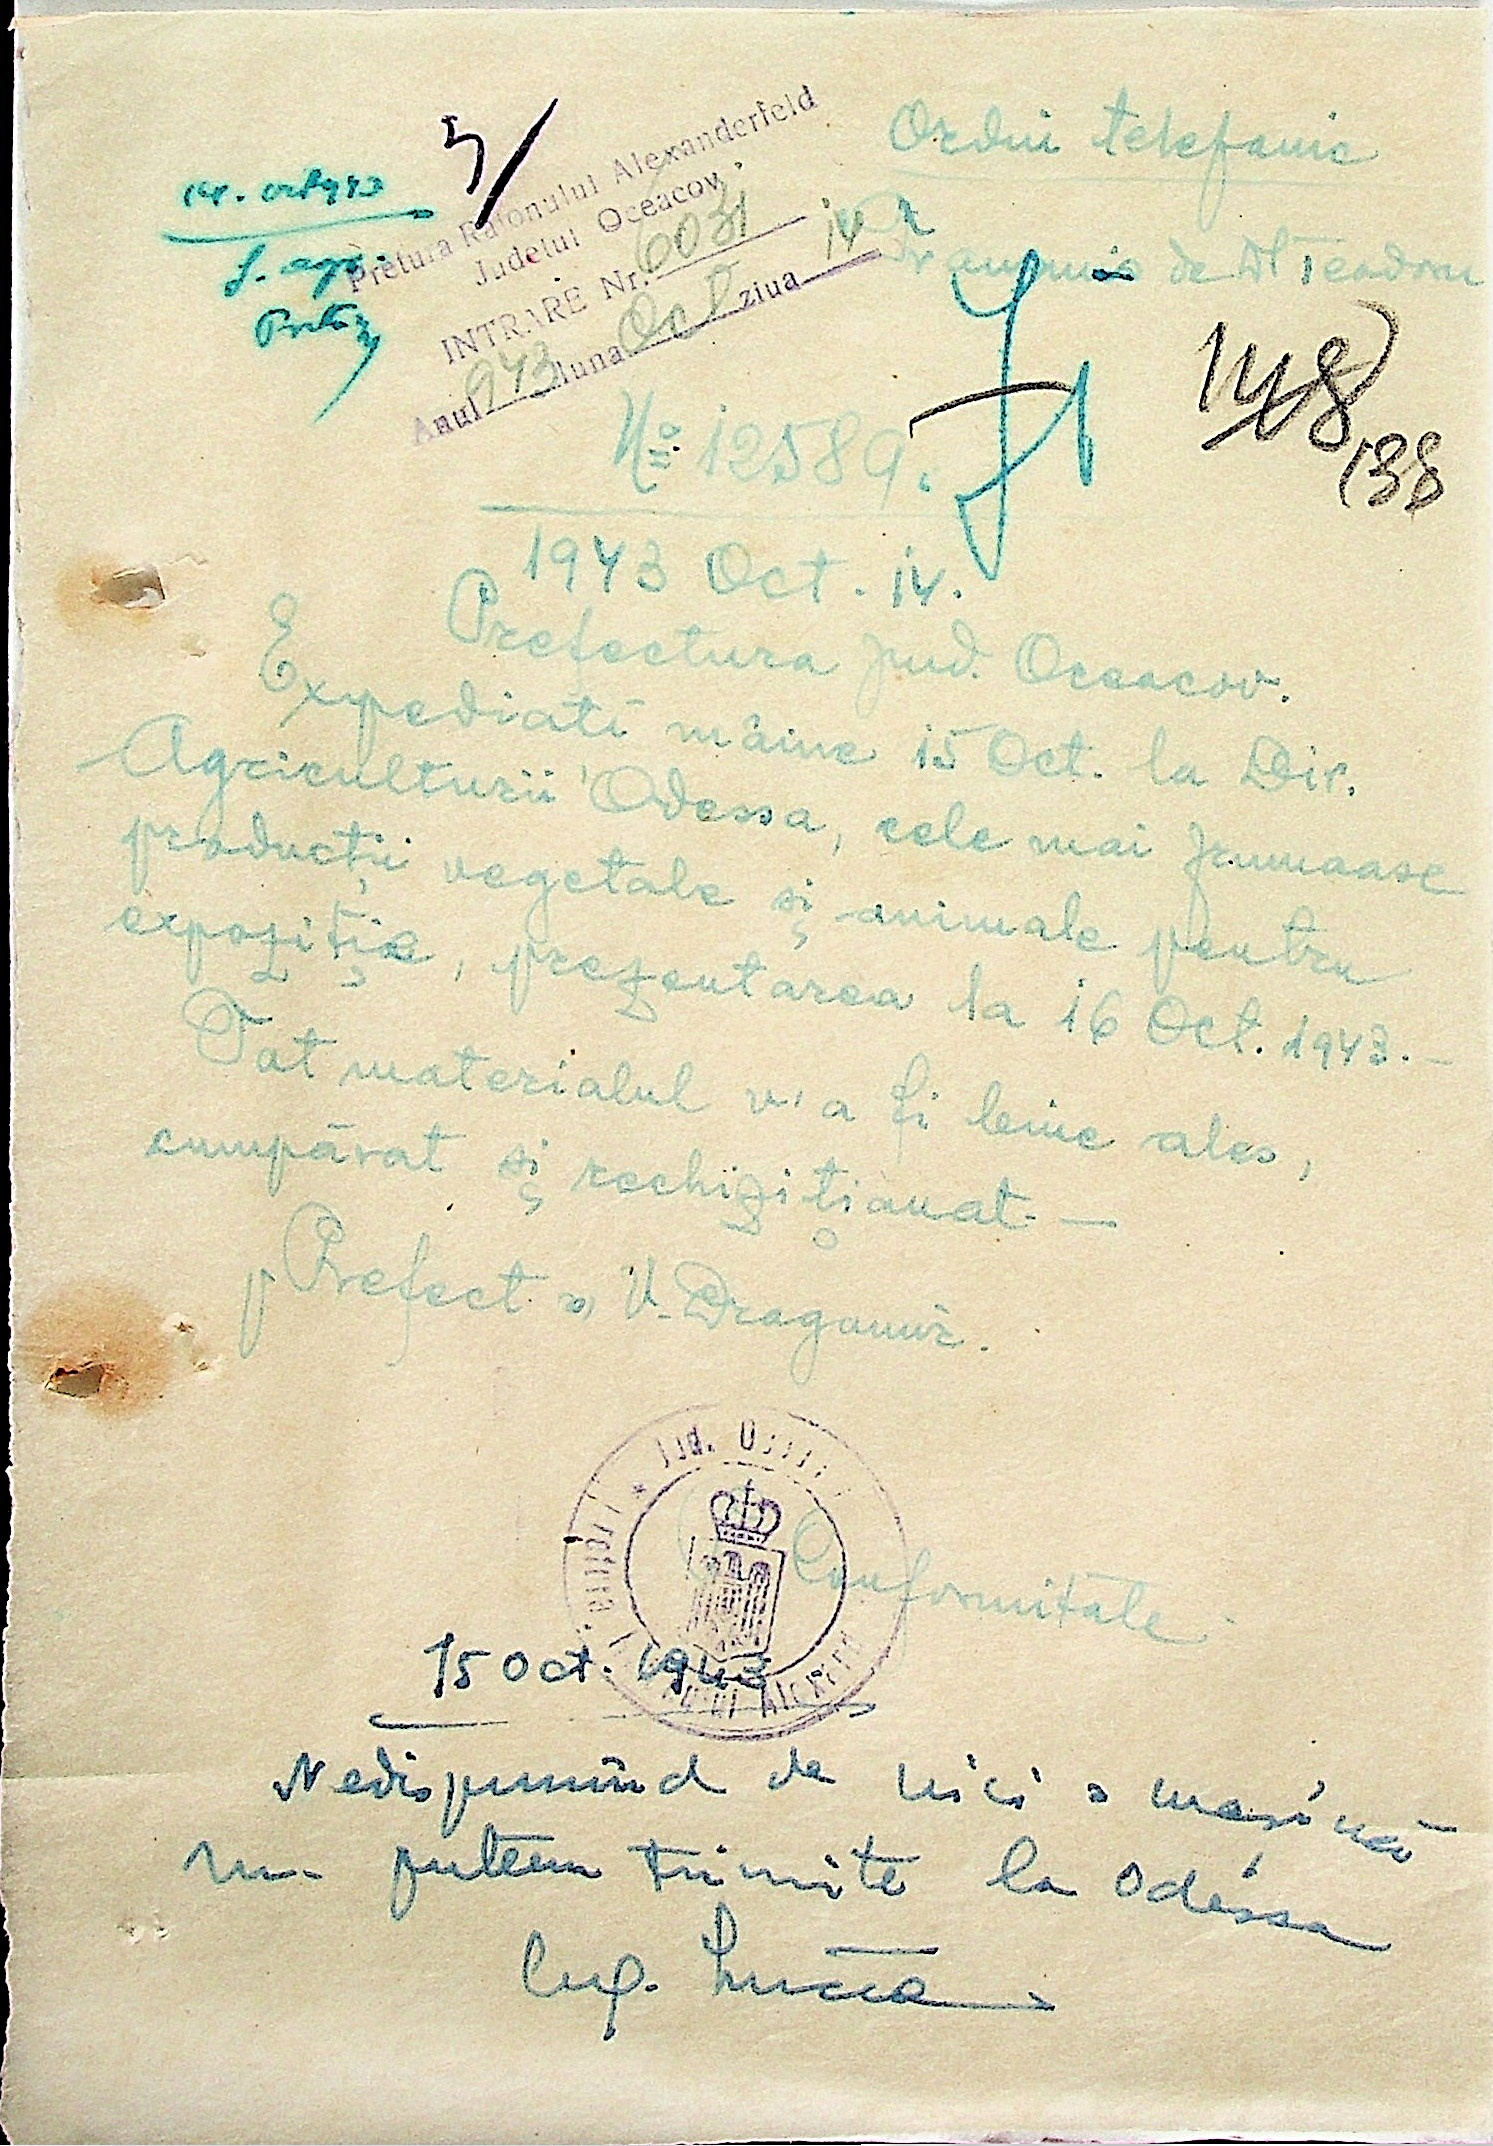 5/
Ordin telefonic
14. oct 943
Pretura Raionului Alexanderfeld
Judetul Oceacov
INTRARE Nr. 6031
Anul 943 luna Oct ziua 14
de Dl Teodoru
148
138
№ 12589.
1943 Oct. 14.
Prefectura jud. Oceacov.
Expediati mâine 15 Oct. la Dir.
Agriculturii Odessa, cele mai frumoase
producții vegetale și animale pentru
expoziție, prezentarea la 16 Oct. 1943. –
Tot materialul v'a fi bine ales,
cumpărat și rechiziționat. —
p Prefect ss V. Dragomir.
Conformitate
15 oct. 1943
Nedispunînd de nici o mașină
nu putem trimite la Odessa